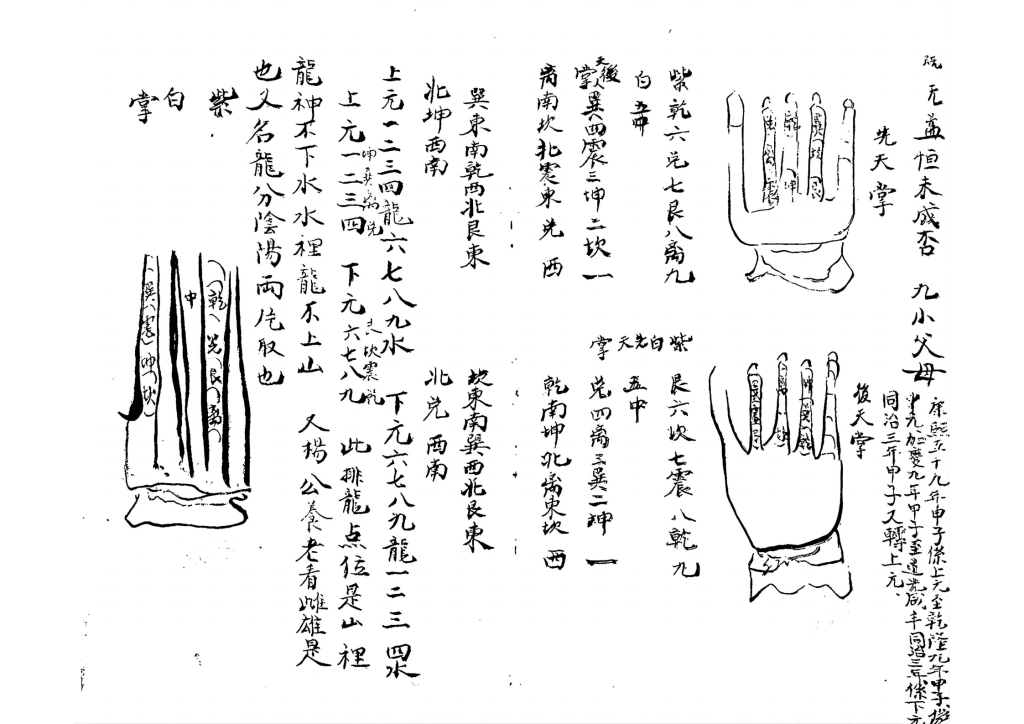 无益恒未咸否 九小父母
康熙五十九年甲子係上元至乾隆九年甲子係
中元加慶九年甲子至道光咸丰同治三年係下元
同治三年甲子又轉上元、
先天掌
後天掌
紫乾六兌七艮八离九
白五中
後天掌巽四震三坤二坎一
离南坎北震東兌西
巽東南乾西北艮東
北坤西南
紫艮六坎七震八乾九
白五中
先天掌兌四离三巽二坤一
乾南坤北离東坎西
坎東南巽西北艮東
北兌西南
上元一二三四龍六七八九水 下元六七八九龍一二三四水
上元一二三四坤巽离兌 下元六七八九艮坎震乾 此排龍点位是山裡
龍神不下水水裡龍不上山 又楊公養老看雌雄是
也又名龍分陰陽兩片取也
紫白掌
乾 兌 艮 离
中
巽 震 坤 坎